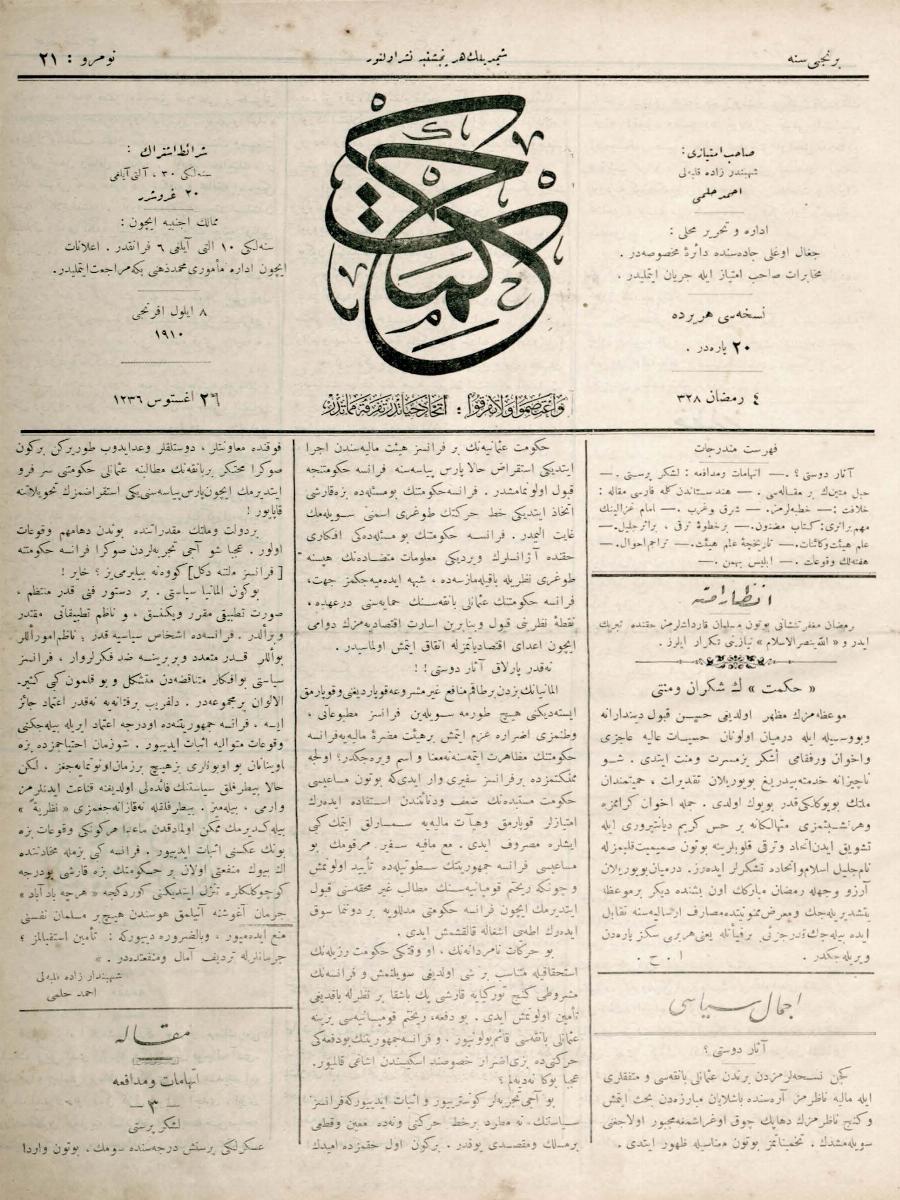 برنجی سنه
شیمدیلك هر پنجشنبه نشر اولنور
نومرو : ٢١
صاحب امتیازی :
شهبندر زاده فلبه‌لی
احمد حلمی
اداره و تحریر محلی :
جغال اوغلی جاده‌سنده دائرهٔ مخصوصه‌در .
مخابرات صاحب امتیاز ایله جریان ایتملیدر .
نسخه‌سی هر یرده
٢٠ پاره‌در .
٤ رمضان ٣٢٨
حكمت
واعتصموا ولا تفرقوا : اتحاد حیاتدر تفرقه مماتدر
شرائط اشتراك :
سنه‌لكی ٣٠ ، آلتی آیلغی
٢٠ غروشدر
ممالك اجنبیه ایچون :
سنه‌لكی ١٠ التی آیلغی ٦ فرانقدر . اعلانات
ایچون اداره مأموری محمد ذهنی بكه مراجعت ایتملیدر.
٨ ایلول افرنجی
١٩١٠
٢٦ اغستوس ١٣٢٦
فهرست مندرجات
آثار دوستی ؟ .— اتهامات ومدافعه : لشكر پرستی .—
حبل متین‌ك بر مقاله‌سی . — هندستاندن كله فارسی مقاله :
خلافت : — خطبه‌لرمز. — شرق وغرب . — امام غزالینك
مهم بر اثری: كتاب مضنون.— بر خطوهٔ ترقی ، براثر جلیل.—
علم هیئت وكائنات.— تاریخچهٔ علم هیئت.— تراجم احوال.—
هفته‌لك وقوعات .— ابلیس بهمن .—
انظار امته
رمضان مغفرتنشانی بوتون مسلمان قارداشلرمز حقنده تبریك
ایدر و « اللّٰه ینصر الاسلام » نیازینی تكرار ایلرز .
« حكمت » ك شكران ومنتی
موعظه‌مزك مظهر اولدیغی حسن قبول دیندارانه
وبووسیله ایله درمیان اولونان حسیات عالیه عاجزی
واخوان ورفقامی آشكر بزمسرت ومنت ایتدی . شو
ناچیزانه خدمته بیدریغ بویوریلان تقدیرات ، حمیتمندان
ملتك بویوكلكی قدر بویوك اولدی . جمله اخوان كرامزه
وهر نشبثمزی متهالكانه بر حس كریم دیانتپروری ایله
تشویق ایدن اتحاد وترقی قلوبلرینه بوتون صمیمیت قلبمزله
نام جلیل اسلام واتحاده تشكرلر ایده‌رز. درمیان بویوریلان
آرزو وجهله رمضان مباركك اون بشنده دیكر بر موعظه
ایده بیله‌جك قدر جزئی بر فیأتله یعنی هر بری سكز پاره‌دن
ویریله‌جكدر .  ا . ح .
اجمال سیاسی
آثار دوستی ؟
كچن نسخه‌لرمزدن برنده عثمانلی بانقه‌سی و متفقلری
ایله مالیه ناظرمز آره‌سنده باشلایان مبارزه‌دن بحث ایتمش
و كنج ناظرمزك دها پك چوق اوغراشمغه مجبور اولاجغنی
سویله‌مشدك . تخمیناتمز بوتون مناسیله ظهور ایتدی .
حكومت عثمانیه‌نك بر فرانسز هیئت مالیه‌سندن اجرا
ایتدیكی استقراض حالا پارس پیاسه‌سنه فرانسه حكومتنجه
قبول اولونمامشدر . فرانسه حكومتنك بومسئله‌ده بزه قارشی
اتخاذ ایتدیكی خط حركتك طوغری اسمنی سویله‌مك
غایت الیمدر . فرانسه حكومتنك بو مسئله‌ده‌كی افكاری
حقنده آژانسلرك ویردیكی معلومات متضاده‌نك هپسنه
طوغری نظریله باقیله‌مازسه‌ده ، شبهه ایده‌میه‌جكمز جهت،
فرانسه حكومتنك عثمانلی بانقه‌سنك حمایه‌سنی درعهده ،
نقطهٔ نظرینی قبول وبنابرین اسارت اقتصادیه‌مزك دوامی
ایچون اعدای اقتصادیاتمزله اتفاق ایتمش اولماسیدر .
نه‌قدر پارلاق آثار دوستی ! !
المانیانك بزدن بر طاقم منافع غیر مشروعه قوپاردیغی وقوپارمق
ایسته‌دیكنی هیچ طورمه سویله‌ین فرانسز مطبوعاتی ،
وطنمزی اضراره عزم ایتمش بر هیئت مضرهٔ مالیه‌یه فرانسه
حكومتنك مظاهرت ایتمه‌سنه نه معنا و اسم ویره‌جكدر؟ اولجه
مملكتمزده بر فرانسز سفیری وار ایدی‌كه بوتون مساعیسنی
حكومت مستبده‌نك ضعف ودنائتندن استفاده ایده‌رك
امتیازلر قوپارمق وهیأت مالیه‌یه سمسارلق ایتمك كبی
ایشلره مصروف ایدی . مع مافیه سفیر مرقومك بو
مساعیسی فرانسه جمهوریتنك سطوتیله‌ده تأیید اولونمش
و چونكه ریختم قومپانیه‌سنك مطالب غیر محقه‌سنی قبول
ایتدیرمك ایچون فرانسه حكومتی مدللویه بر دوننما سوق
ایده‌رك اطه‌یی اشغاله قالقشمش ایدی .
بو حركات نامردانه‌نك ، او وقتكی حكومت رزیله‌نك
استحقاقیله متناسب بر شی اولدیغی سویلنمش و فرانسه‌نك
مشروطی كنج توركیایه قارشی پك باشقا بر نظرله باقدیغی
تأمین اولونمش ایدی . بو دفعه ، ریختم قومپانیه‌سی یرینه
عثمانلی بانقه‌سی قائم بولونیور . و فرانسه جمهوریتنك بو دفعه‌كی
حركتی‌ده بزی اضرار خصوصنده اسكیسندن اشاغی قالمیور.
عجبا بوكا نه‌دیه‌لم ؟
بو آجی تجربه‌لر كوستریور و اثبات ایدییور كه فرانسز
سیاستنك ، نه مطرد بر خط حركتی ونه‌ده معین وقطعی
بر مسلك ومقصدی یوقدر . بر كون اول حقمزده امیدك
فوقنده معاونتلر ، دوستلقلر وعد ایدوب طورركن بر كون
صوكرا محتكر بر بانقه‌نك مطالبنه عثمانلی حكومتنی سر فرو
ایتدیرمك ایچون پارس پیاسه‌سنی‌یكی استقراضمزك تحویلاتنه
قاپایور !
بر دولت وملتك مقدراتنده بوندن دها مهم وقوعات
اولور . عجبا شو آجی تجربه‌لردن صوكرا فرانسه حكومتنه
[ فرانسز ملتنه دكل ] كوونه بیلیرمی‌یز ؟ خایر !
بوكون المانیا سیاستی . بر دستور فنی قدر منتظم ،
صورت تطبیقی مقرر ویكنسق ، و ناظم تطبیقاتی مقتدر
وبر آلدر . فرانسه‌ده اشخاص سیاسیه قدر ، ناظم امور اللر
بو اللر قدر متعدد وبربرینه ضد فكرلر وار ، فرانسز
سیاستی بو افكار متناقضه‌دن متشكل و بو قلمون كبی كثیر-
الالوان بر مجموعه‌در . دلفریب برقتانه‌یه نه‌قدر اعتماد جائز
ایسه ، فرانسه جمهوریتنه‌ده اودرجه اعتماد ایدیله بیله‌جكنی
وقوعات متوالیه اثبات ایدییور . شوزمان احتیاجمزده بزه
اوینانان بو اویونلری بز هیچ بر زمان اونوتمایه‌جغز ، لكن
حالا بیطرفلق سیاستنك فائده‌لی اولدیغنه قناعت ایدنلرمز
وارمی ، بیله‌میز . بیطرفلقله نه‌قازانه‌جغمزی « نظریهٔ » ی
بیله كدیرمك ممكن اولمادقدن ماعدا هر كونكی وقوعات بزه
بونك عكسنی اثبات ایدییور . فرانسه كبی بزمله مخادنتنده
اك بیوك منفعتی اولان بر حكومتك بزه قارشی بو درجه
كوچوكلكلره تنزل ایتدیكنی كوردكجه « هرچه باد آباد »
جرمان آغوشنه آتیلمق هوسندن هیچ بر مسلمان نفسنی
منع ایده‌میور . وبالضروره دییوركه : تأمین استقبالمز ؟
جرمانلرله تردیف آمال ومنفعتده‌در . »
شهبندر زاده فلبه‌لی
احمد حلمی
مقاله
اتهامات ومدافعه
— ٣ —
لشكر پرستی
عسكرلكی پرستش درجه‌سنده سومك ، بوتون واردا